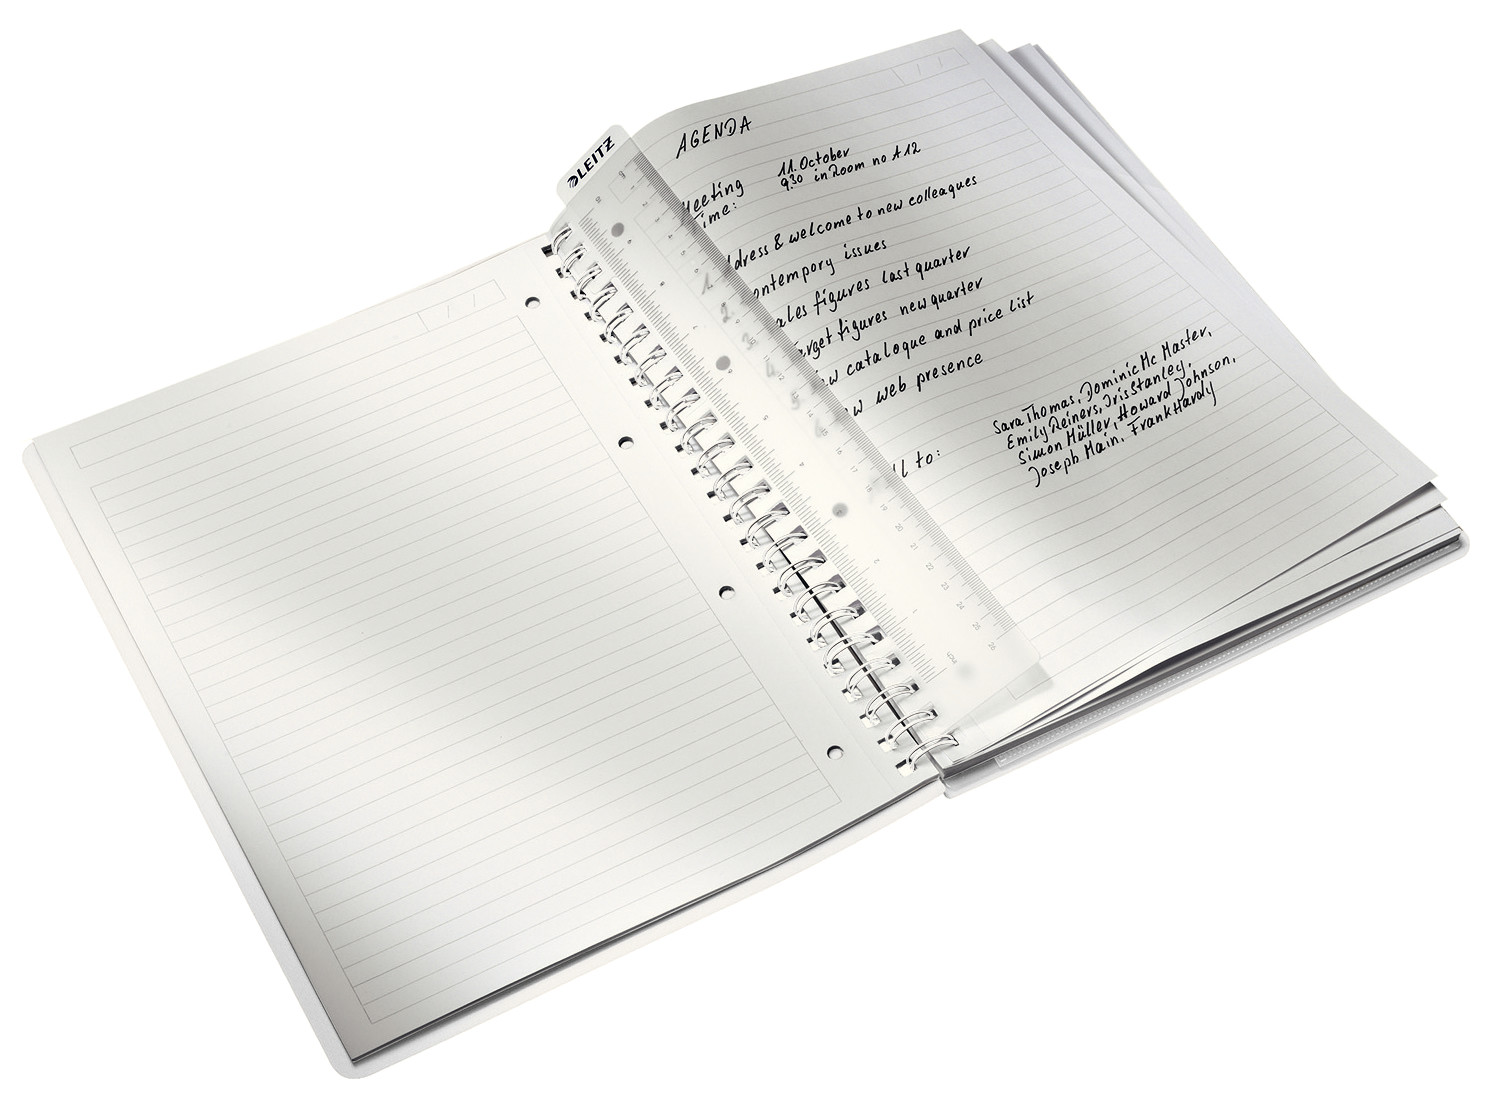 LEITZ
AGENDA
Meeting
Time:
11. October
9.30 in Room no A 12
1. dress & welcome to new colleagues
2. ontempory issues
3. ales figures last quarter
4. arget figures new quarter
5. ew catalogue and price list
6. ew web presence
ll to:
Sara Thomas, Dominic Mc Master,
Emily Reiners, Iris Stanley,
Simon Müller, Howard Johnson,
Joseph Main, Frank Hardy